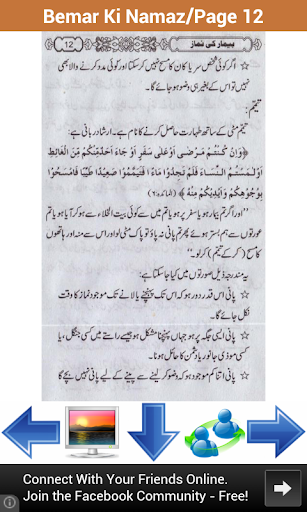 Bemar Ki Namaz/Page 12
بیمار کی نماز
12
☆ اگر کوئی شخص سر یا کان کا مسح نہیں کر سکتا اور کوئی مدد کرنے والا بھی
نہیں تو اس کے بغیر ہی وضو ہو جائے گا۔
تیمّم:
تیمّم مٹی کے ساتھ طہارت حاصل کرنے کا نام ہے۔ ارشاد ربانی ہے:
﴿وَإِنْ كُنْتُمْ مَرْضَى أَوْ عَلَى سَفَرٍ أَوْ جَاءَ أَحَدٌ مِنْكُمْ مِنَ الْغَائِطِ
أَوْ لَمَسْتُمُ النِّسَاءَ فَلَمْ تَجِدُوا مَاءً فَتَيَمَّمُوا صَعِيدًا طَيِّبًا فَامْسَحُوا
بِوُجُوهِكُمْ وَأَيْدِيكُمْ مِنْهُ﴾ (المائدہ:٦)
"اور اگر تم بیمار ہو یا سفر پر ہو یا تم میں سے کوئی بیت الخلاء سے ہو کر آیا ہو یا تم
عورتوں سے ہم بستر ہوئے پھر تم پانی نہ پاؤ تو پاک مٹی لو اور اس سے منہ اور ہاتھوں
کا مسح (کر کے تیمّم) کر لو۔"
یہ مندرجہ ذیل صورتوں میں کیا جا سکتا ہے:
☆ پانی اس قدر دور ہو کہ اس تک پہنچنے یا لانے تک موجود نماز کا وقت
نکل جائے گا۔
☆ پانی ایسی جگہ پر ہو جہاں پہنچنا مشکل ہو جیسے راستے میں کسی جنگل، یا
کسی موذی جانور یا دشمن کا حائل ہونا۔
☆ پانی اتنا کم موجود ہو کہ وضو کر لینے سے پینے کے لیے پانی نہیں بچے گا
Connect With Your Friends Online.
Join the Facebook Community - Free!